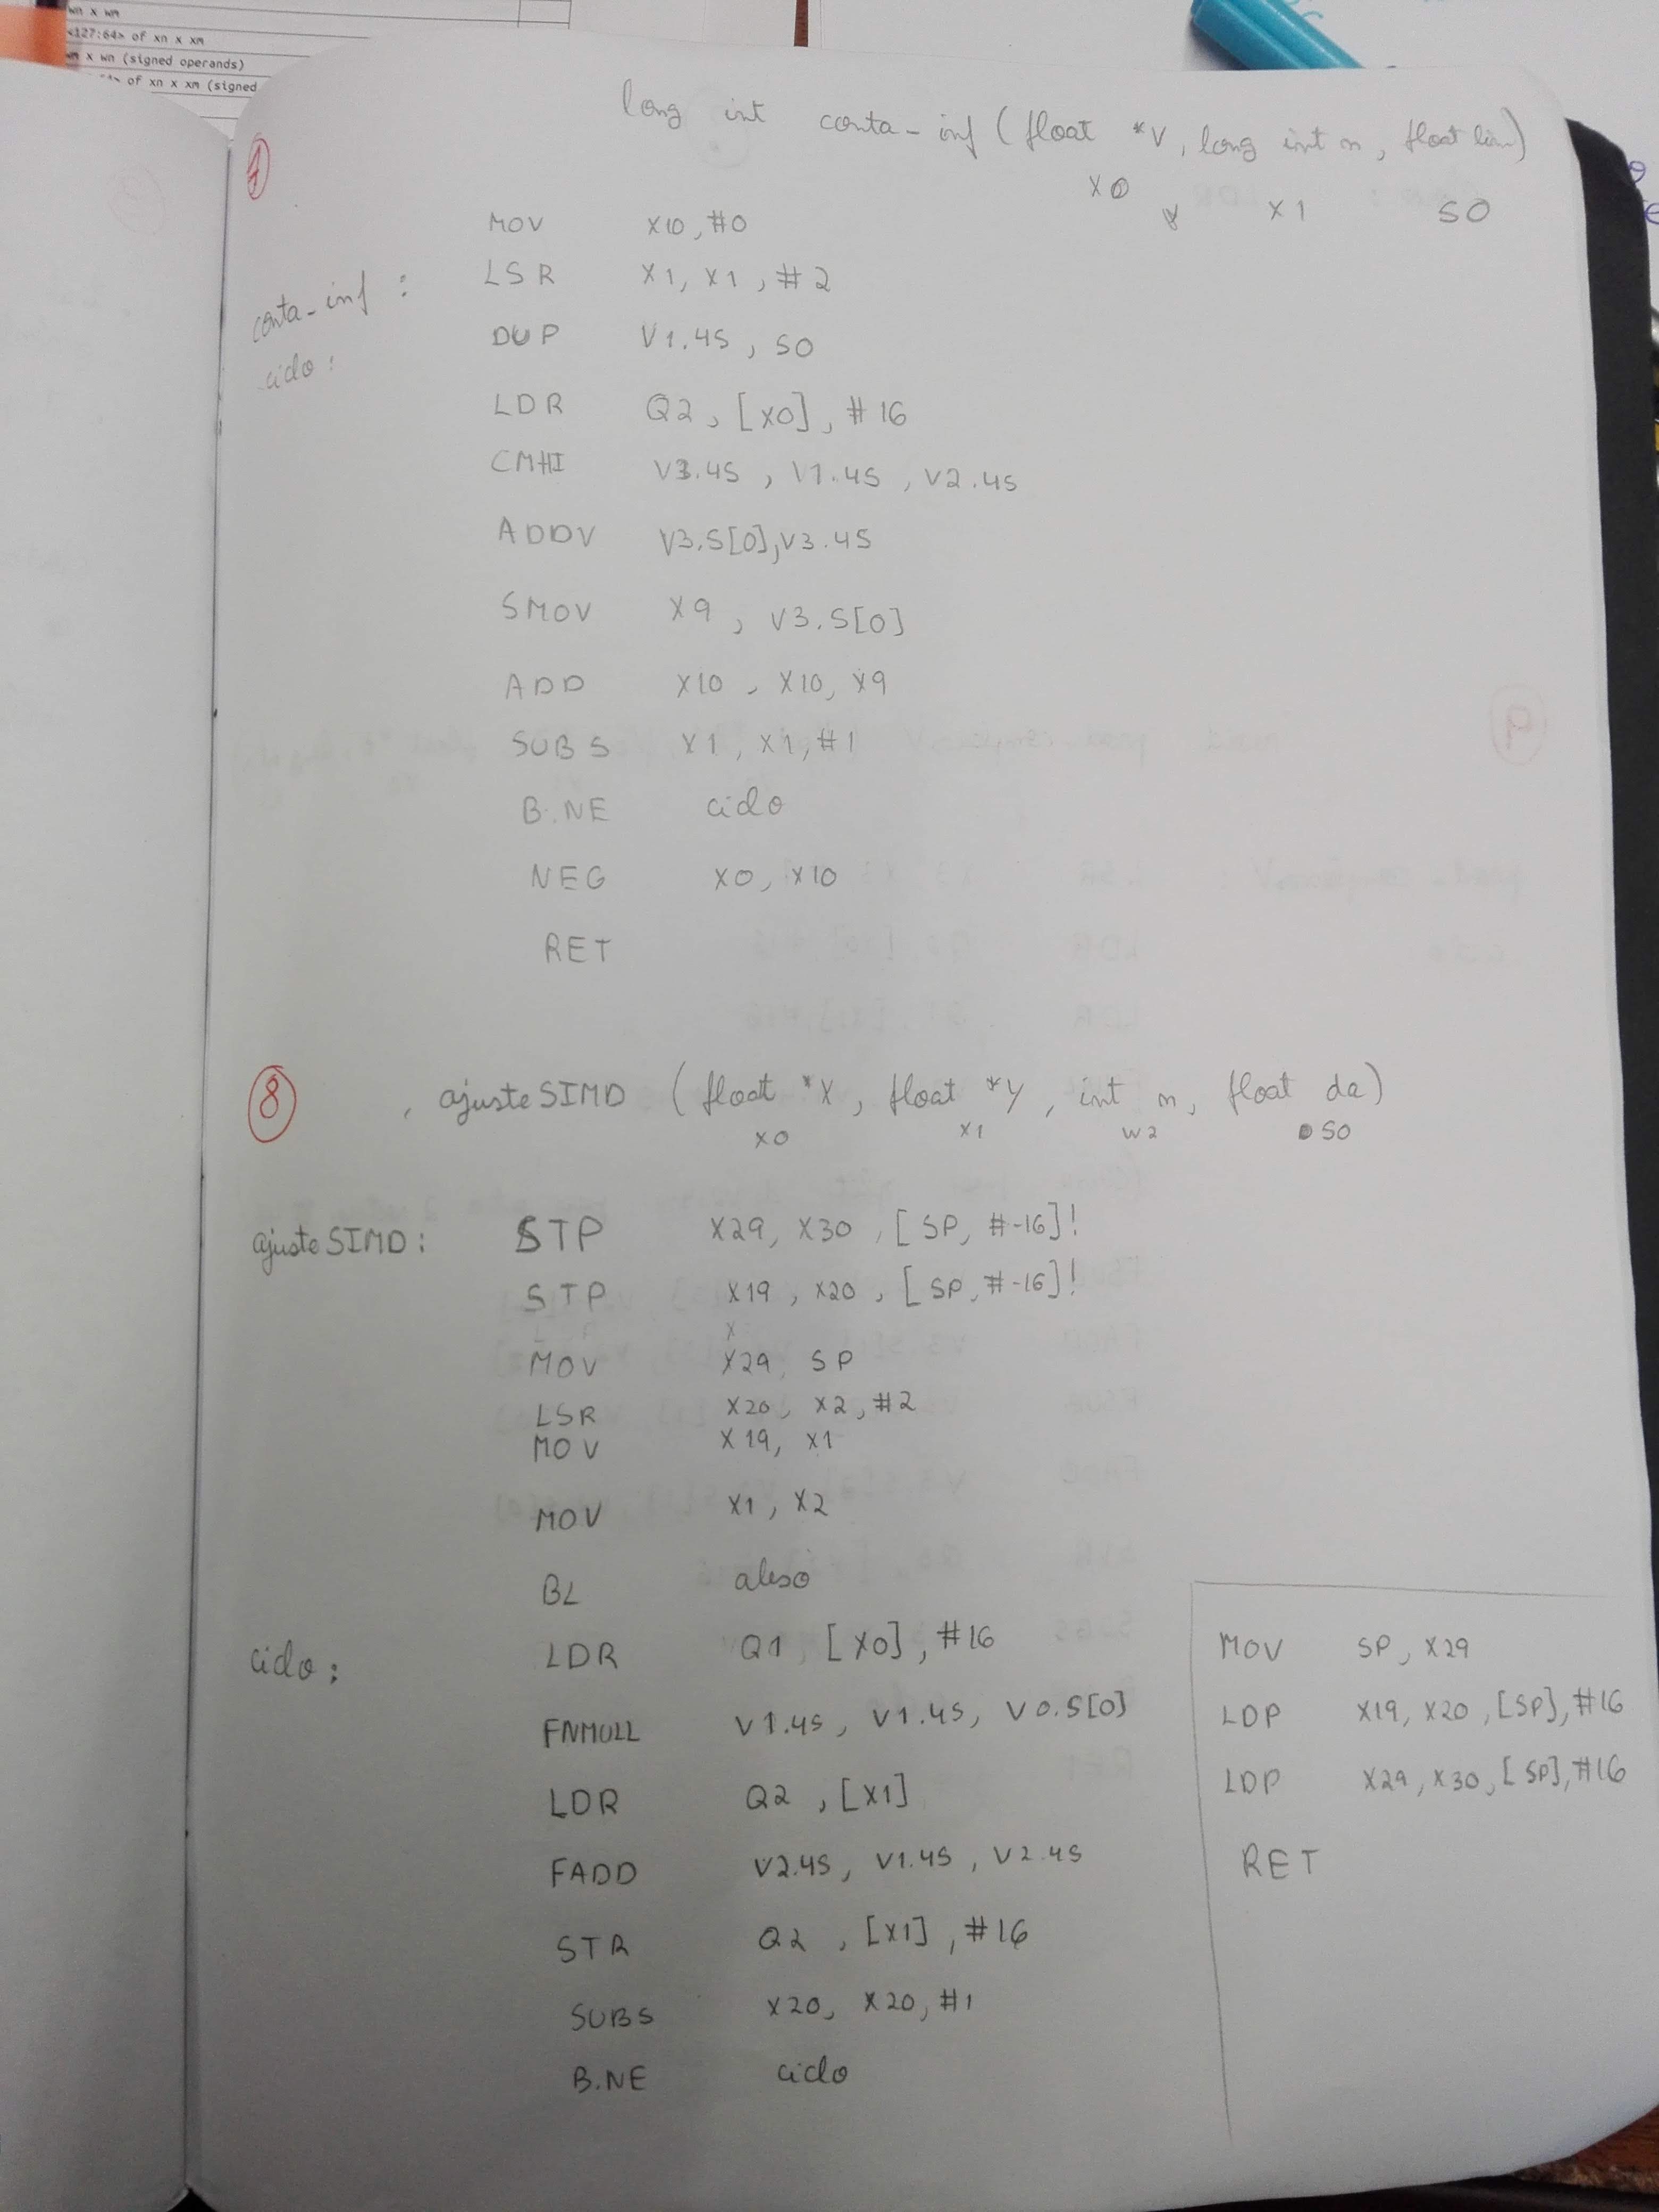 wn x wm
<127:64> of xn x xm
x wn (signed operands)
of xn x xm (signed
long int conta-inf (float *V, long int n, float lim)
X0 X1 S0
MOV X10, #0
conta-inf : LSR X1, X1, #2
DUP V1.4S, S0
ciclo:
LDR Q2, [X0], #16
CMHI V3.4S, V1.4S, V2.4S
ADDV V3.S[0], V3.4S
SMOV X9, V3.S[0]
ADD X10, X10, X9
SUBS X1, X1, #1
B.NE ciclo
NEG X0, X10
RET
8 ajusteSIMD (float *X, float *Y, int n, float da)
X0 X1 W2 S0
ajusteSIMD: STP X29, X30, [SP, #-16]!
STP X19, X20, [SP, #-16]!
MOV X29, SP
LSR X20, X2, #2
MOV X19, X1
MOV X1, X2
BL
ciclo: LDR Q1, [X0], #16
FNMULL V1.4S, V1.4S, V0.S[0]
LDR Q2, [X1]
FADD V2.4S, V1.4S, V2.4S
STR Q2, [X1], #16
SUBS X20, X20, #1
B.NE ciclo
MOV SP, X29
LDP X19, X20, [SP], #16
LDP X29, X30, [SP], #16
RET